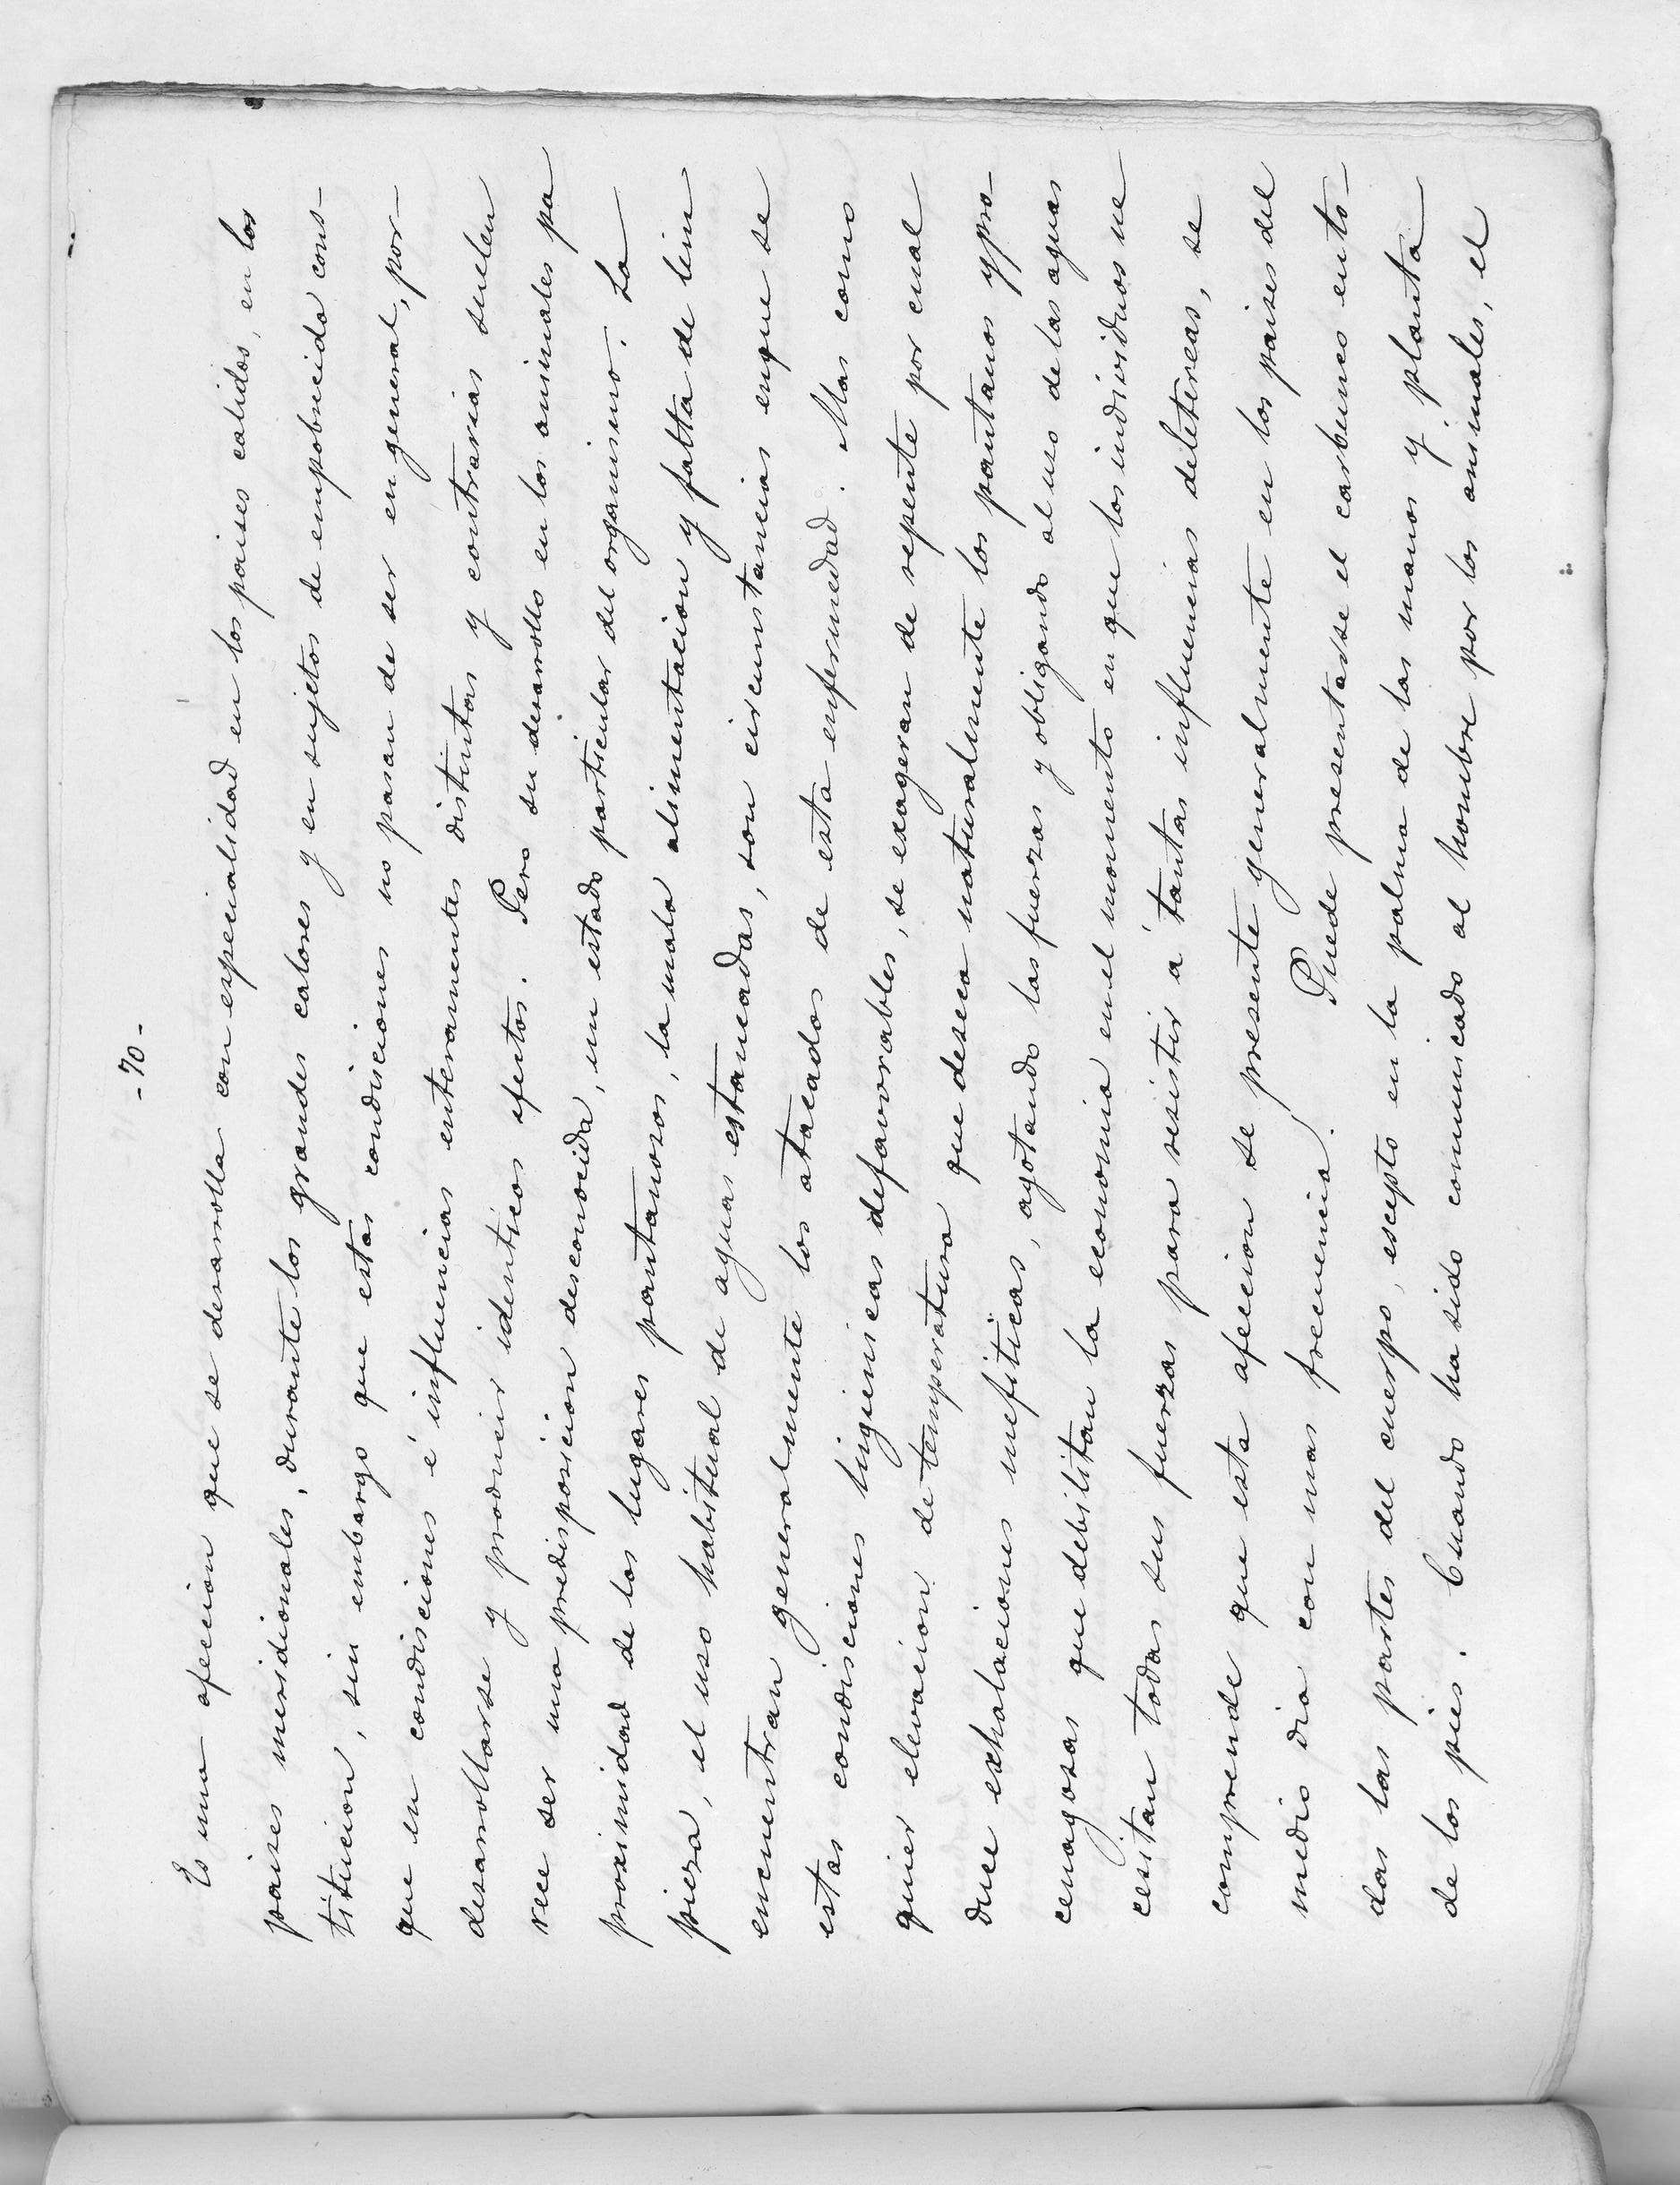 -70-
Es una afeccion que se desarrolla con especialidad en los paises calidos, en los
paises meridionales, durante los grandes calores y en sujetos de empobrecida cons-
titucion, sin embargo que estas condisciones no pasan de ser en general, por-
que en condisciones é influencias enteramentes distintas y contrarias suelen
desarrollarse y producir identicos efectos. Pero su desarrollo en los animales pa
rece ser una predisposicion desconocida, un estado particular del organismo. La
proximidad de los lugares pantanosos, la mala alimentacion y falta de lim
pieza, el uso habitual de aguas estancadas, son circunstancias enque se
encuentran generalmente los atacados de esta enfermedad. Mas como
estas condisciones higienicas defavorables, se exageran de repente por cual
quier elevacion de temperatura que deseca naturalmente los pantanos y pro-
duce exhalaciones mefiticas, agotando las fuerzas y obligando al uso de las aguas
cenagosas que debilitan la economia en el momento en que los individuos ne
cesitan todas sus fuerzas para resistir á tantas influencias deletereas, se
comprende que esta afeccion se presente generalmente en los paises del
medio dia con mas frecuencia. Puede presentarse el carbunco en to-
das las partes del cuerpo, escepto en la palma de las manos y planta
de los pies. Cuando ha sido comunicado al hombre por los animales, el